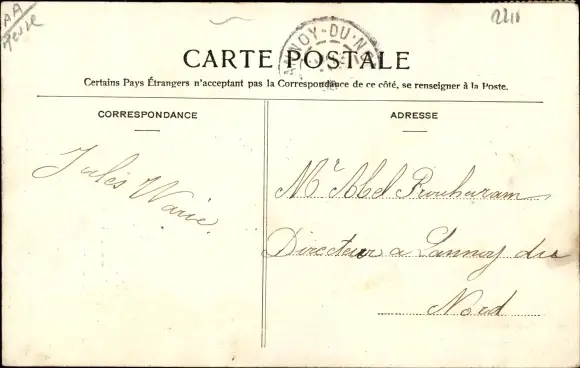 AA
2211
LANNOY-DU-NORD
CARTE POSTALE
Certains Pays Étrangers n'acceptant pas la Correspondance de ce côté, se renseigner à la Poste.
CORRESPONDANCE
Jules Warie
ADRESSE
Mr Abel Prouharam
Directeur a Lannoy du
Nord